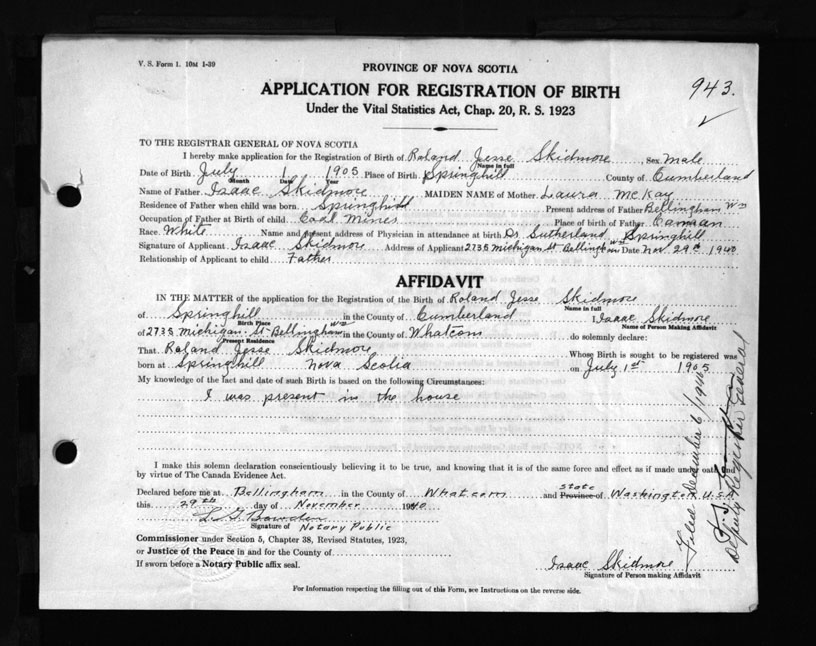 V. S. Form 1. 10M 1-39
PROVINCE OF NOVA SCOTIA
943.
APPLICATION FOR REGISTRATION OF BIRTH
Under the Vital Statistics Act, Chap. 20, R. S. 1923
TO THE REGISTRAR GENERAL OF NOVA SCOTIA
I hereby make application for the Registration of Birth of Roland Jesse Skidmore, Sex Male
Name in full
Date of Birth July 1 1905 Place of Birth Springhill County of Cumberland
Month Day Year
Name of Father Isaac Skidmore MAIDEN NAME of Mother Laura McKay
Residence of Father when child was born Springhill Present address of Father Bellingham Wn
Occupation of Father at Birth of child Coal Mines Place of birth of Father Canaan
Race White Name and present address of Physician in attendance at birth Dr Sutherland Springhill
Signature of Applicant Isaac Skidmore Address of Applicant 2735 Michigan St Bellingham Wn Date Nov 29th 1940
Relationship of Applicant to child Father
AFFIDAVIT
IN THE MATTER of the application for the Registration of the Birth of Roland Jesse Skidmore
Name in full
of Springhill in the County of Cumberland I Isaac Skidmore
Birth Place Name of Person Making Affidavit
of 2735 Michigan St Bellingham Wn in the County of Whatcom do solemnly declare:
Present Residence
That Roland Jesse Skidmore Whose Birth is sought to be registered was
born at Springhill Nova Scotia on July 1st 1905
My knowledge of the fact and date of such Birth is based on the following Circumstances:
I was present in the house
I make this solemn declaration conscientiously believing it to be true, and knowing that it is of the same force and effect as if made under oath and
by virtue of The Canada Evidence Act.
Declared before me at Bellingham in the County of Whatcom and Province of state Washington U.S.A.
this 29th day of November 1940
L. G. Bowden
Signature of Notary Public
Commissioner under Section 5, Chapter 38, Revised Statutes, 1923,
or Justice of the Peace in and for the County of
If sworn before a Notary Public affix seal.
Isaac Skidmore
Signature of Person making Affidavit
For Information respecting the filling out of this Form, see Instructions on the reverse side.
Filed December 6/1940
Deputy Registrar General